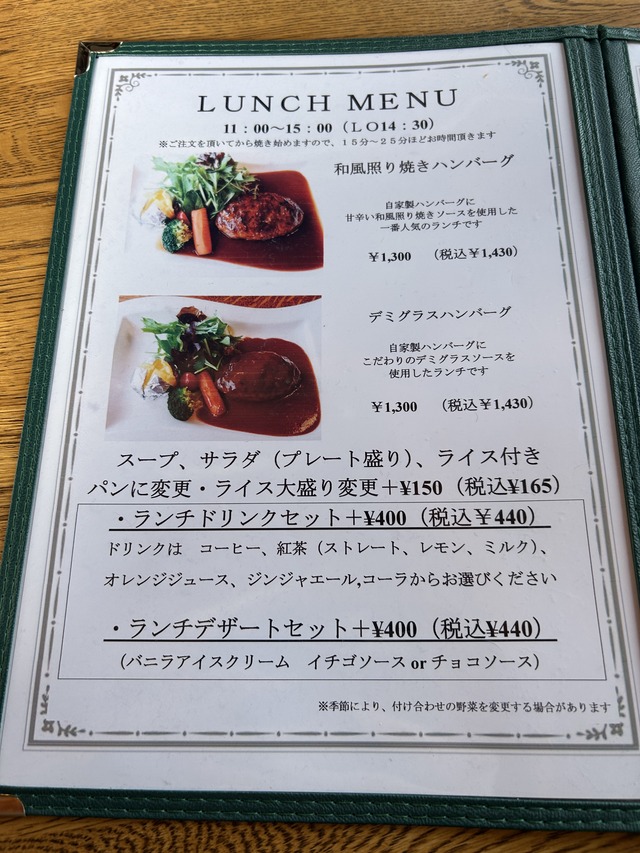 LUNCH MENU
11：00～15：00（LO14：30）
※ご注文を頂いてから焼き始めますので、１５分～２５分ほどお時間頂きます
和風照り焼きハンバーグ
自家製ハンバーグに
甘辛い和風照り焼きソースを使用した
一番人気のランチです
￥1,300　（税込￥1,430）
デミグラスハンバーグ
自家製ハンバーグに
こだわりのデミグラスソースを
使用したランチです
￥1,300　（税込￥1,430）
スープ、サラダ（プレート盛り）、ライス付き
パンに変更・ライス大盛り変更＋¥150（税込¥165）
・ランチドリンクセット＋¥400（税込￥440）
ドリンクは　コーヒー、紅茶（ストレート、レモン、ミルク）、
オレンジジュース、ジンジャエール,コーラからお選びください
・ランチデザートセット＋¥400（税込¥440）
（バニラアイスクリーム　イチゴソース or チョコソース）
※季節により、付け合わせの野菜を変更する場合があります